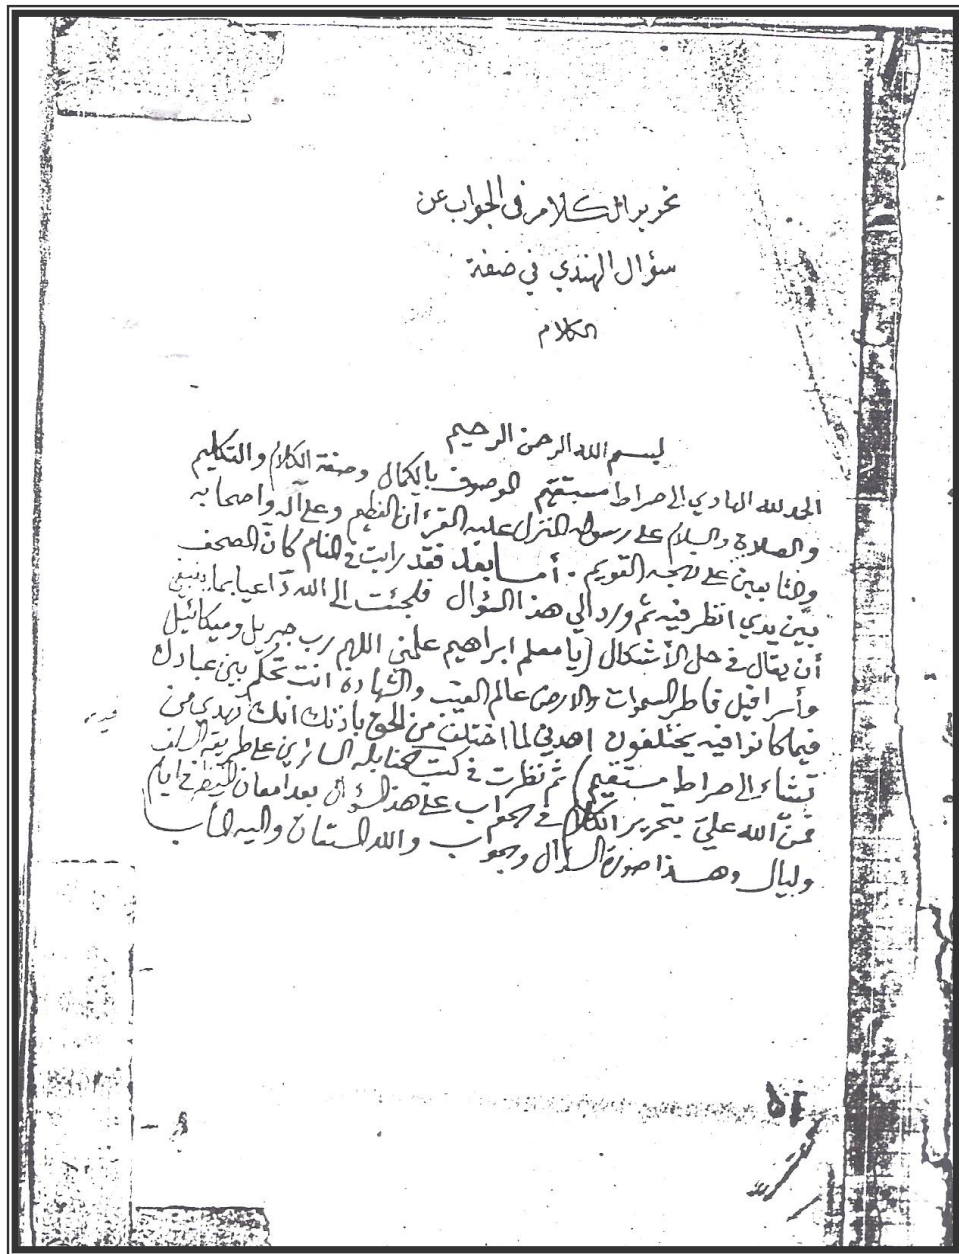 تحرير الكلام في الجواب عن
سؤال الهندي في صفة
الكلام
بسم الله الرحمن الرحيم
الحمد لله الهادي إلى صراط مستقيم الموصوف بالكمال وصفة الكلام والتكليم
والصلاة والسلام على رسوله المنزل عليه القرءآن العظيم وعلى آله واصحابه
والتابعين على نهجه القويم . أما بعد فقد رايت في المنام كأن المصحف
بين يدي انظر فيه ثم ورد الي هذا السؤال فلجئت الى الله داعيا بما ينبغي
أن يقال في حل الأشكال (يا معلم ابراهيم علمني اللهم رب جبريل وميكائيل
وأسرافيل فاطر السموات والارض عالم الغيب والشهادة انت تحكم بين عبادك
فيما كانوا فيه يختلفون اهدني لما اختلف من الحق باذنك انك تهدي من
تشاء إلى صراط مستقيم) ثم نظرت في كتب الحنابلة السائرين على طريقة السلف
فمنّ الله عليّ بتحرير الكلام في الجواب على هذا السؤال بعد امعان النظر في ايام
وليال وهذا صورة السؤال وجواب والله المستعان واليه المأب